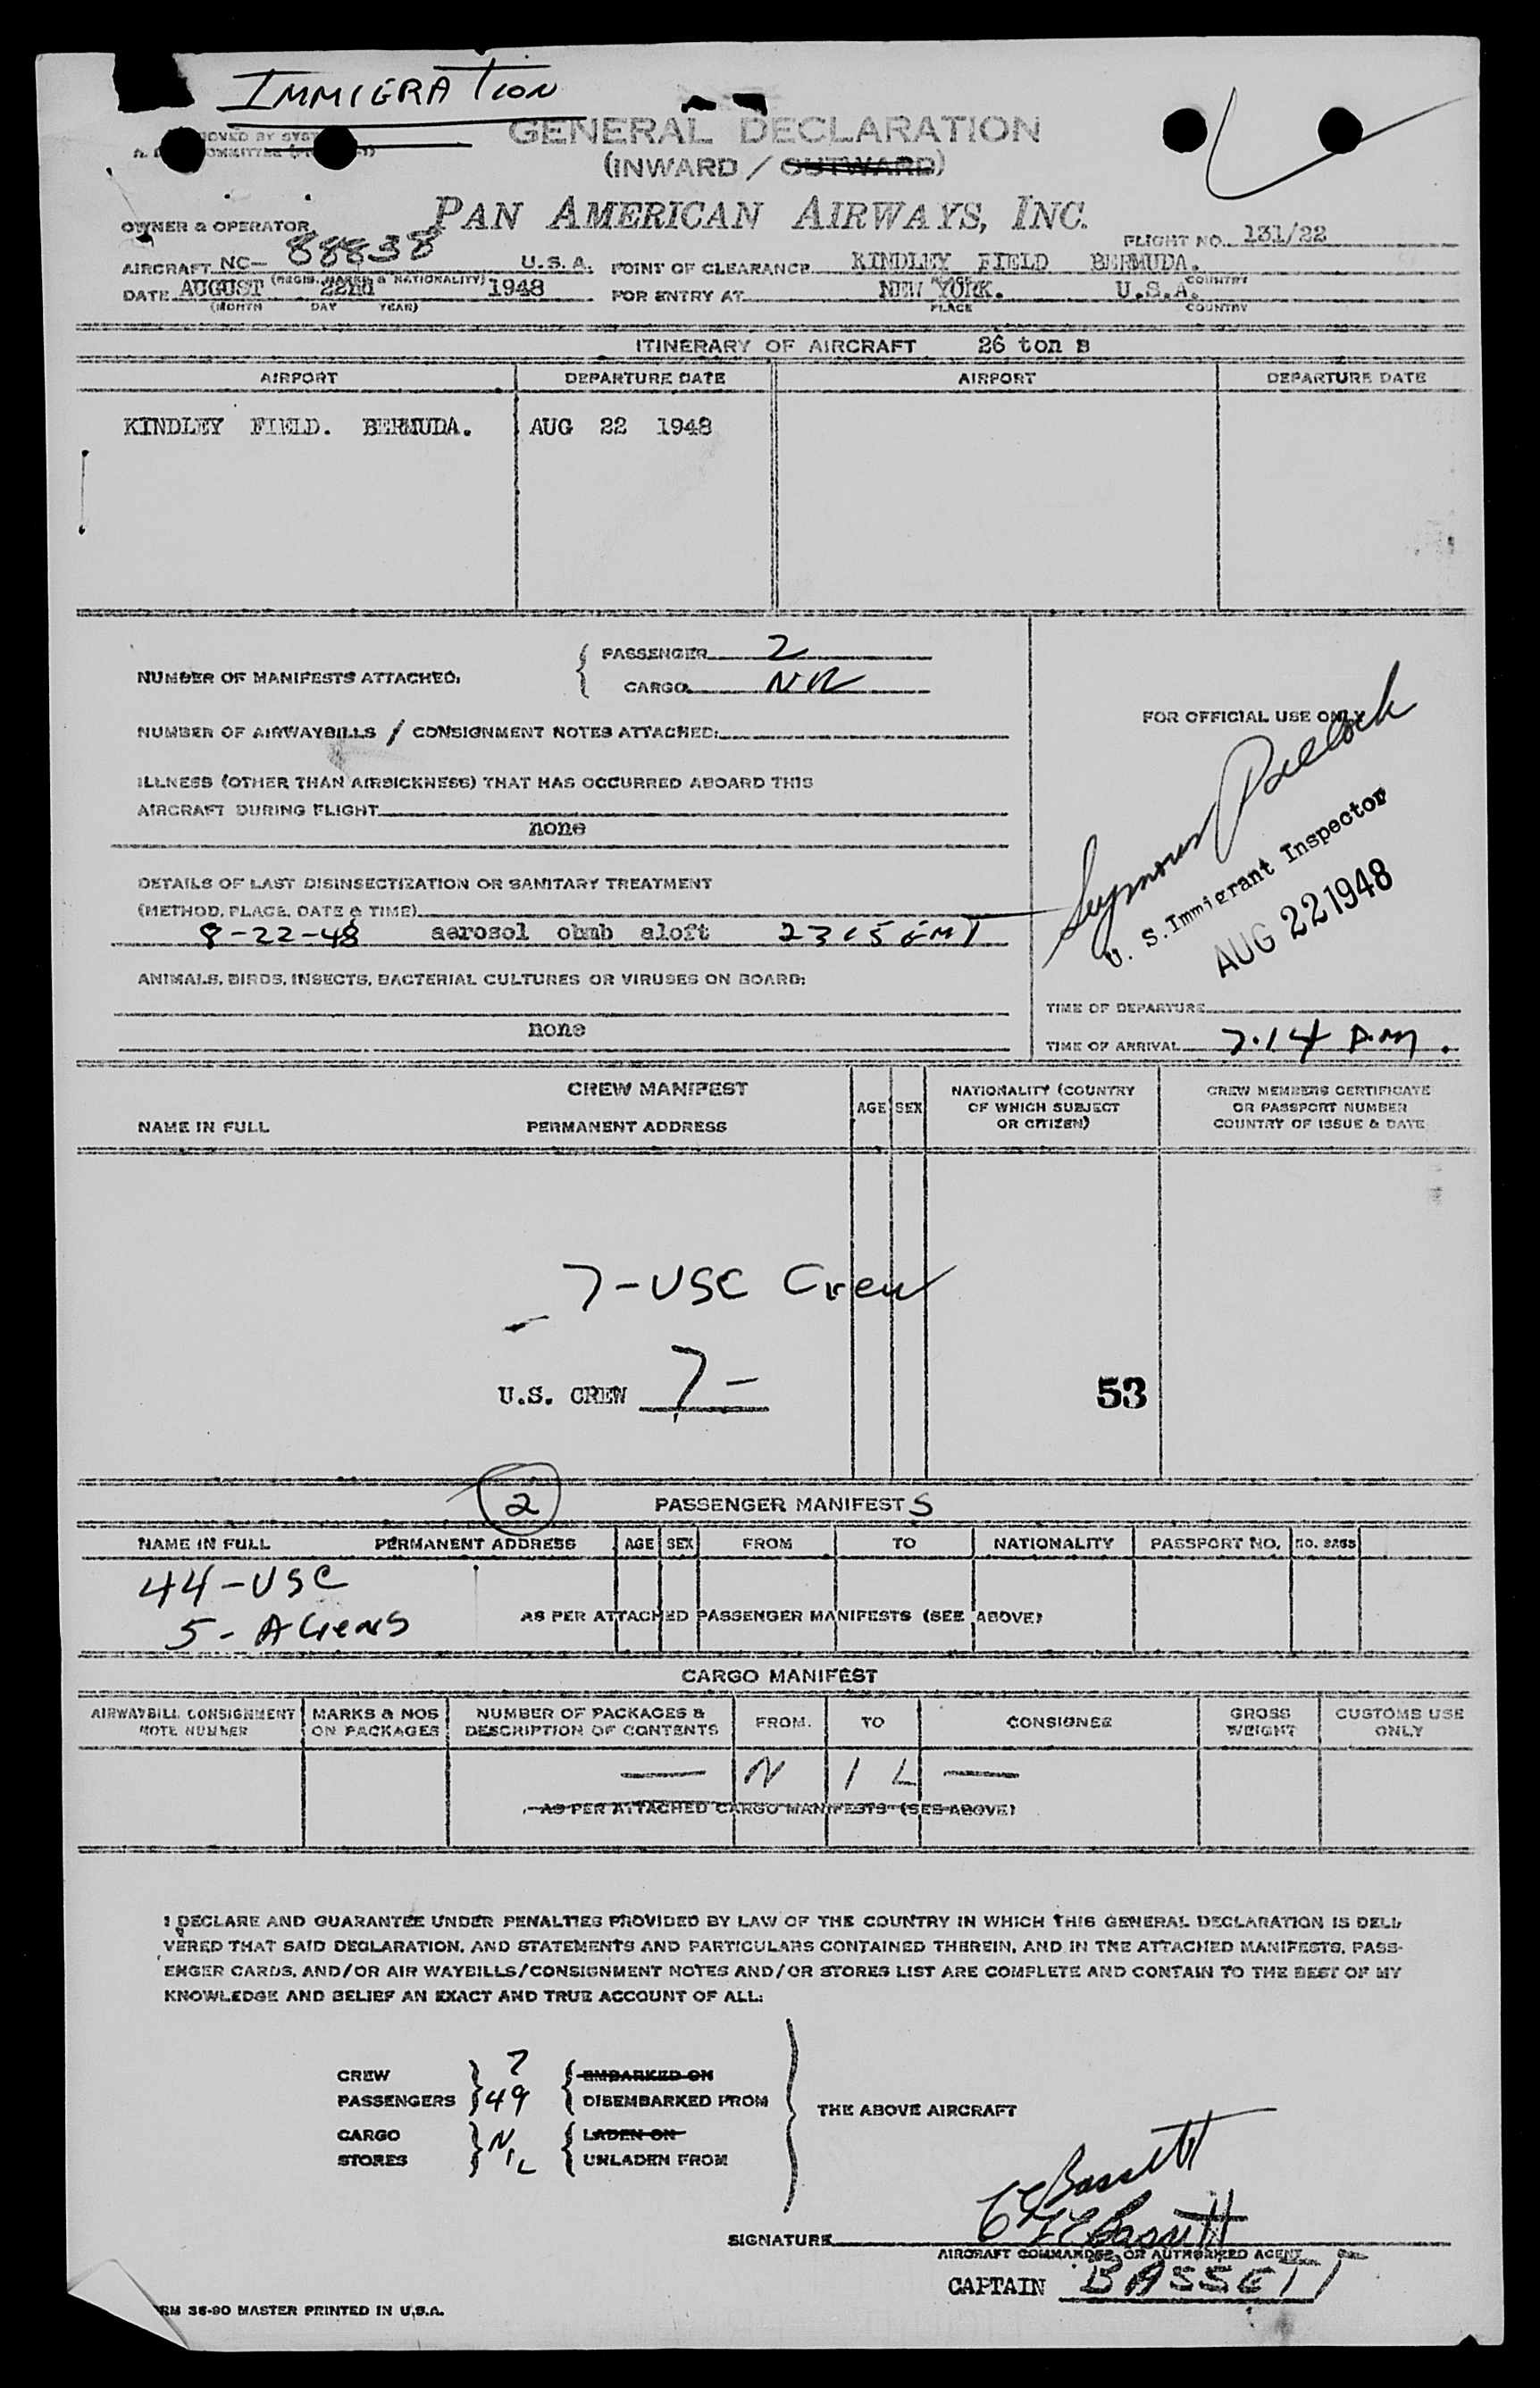 IMMIGRATION
GENERAL DECLARATION
(INWARD / OUTWARD)
OWNER & OPERATOR PAN AMERICAN AIRWAYS, INC.
FLIGHT NO. 131/22
AIRCRAFT NC- 88838 U.S.A. POINT OF CLEARANCE KINDLEY FIELD BERMUDA.
(REGIS. MARKS & NATIONALITY) COUNTRY
DATE AUGUST 22nd 1948 FOR ENTRY AT NEW YORK. U.S.A.
(MONTH DAY YEAR) PLACE COUNTRY
ITINERARY OF AIRCRAFT 26 ton s
AIRPORT DEPARTURE DATE AIRPORT DEPARTURE DATE
KINDLEY FIELD. BERMUDA. AUG 22 1948
NUMBER OF MANIFESTS ATTACHED: PASSENGER 2
CARGO
NUMBER OF AIRWAYBILLS / CONSIGNMENT NOTES ATTACHED:
FOR OFFICIAL USE ONLY
ILLNESS (OTHER THAN AIRSICKNESS) THAT HAS OCCURRED ABOARD THIS
AIRCRAFT DURING FLIGHT
none
DETAILS OF LAST DISINSECTIZATION OR SANITARY TREATMENT
(METHOD, PLACE, DATE & TIME)
8-22-48 aerosol aloft 2315 GMT
Seymour Pollock
U. S. Immigrant Inspector
AUG 22 1948
ANIMALS, BIRDS, INSECTS, BACTERIAL CULTURES OR VIRUSES ON BOARD:
none
TIME OF DEPARTURE
TIME OF ARRIVAL 7.14 P.M.
CREW MANIFEST
NAME IN FULL PERMANENT ADDRESS AGE SEX NATIONALITY (COUNTRY OF WHICH SUBJECT OR CITIZEN) CREW MEMBERS CERTIFICATE OR PASSPORT NUMBER COUNTRY OF ISSUE & DATE
7-USC Crew
U.S. CREW 7-
53
2 PASSENGER MANIFEST S
NAME IN FULL PERMANENT ADDRESS AGE SEX FROM TO NATIONALITY PASSPORT NO. NO. BAGS
44-USC
5-ALIENS AS PER ATTACHED PASSENGER MANIFESTS (SEE ABOVE)
CARGO MANIFEST
AIRWAYBILL CONSIGNMENT NOTE NUMBER MARKS & NOS ON PACKAGES NUMBER OF PACKAGES & DESCRIPTION OF CONTENTS FROM. TO CONSIGNEE GROSS WEIGHT CUSTOMS USE ONLY
— N I L —
AS PER ATTACHED CARGO MANIFESTS (SEE ABOVE)
I DECLARE AND GUARANTEE UNDER PENALTIES PROVIDED BY LAW OF THE COUNTRY IN WHICH THIS GENERAL DECLARATION IS DELI-
VERED THAT SAID DECLARATION, AND STATEMENTS AND PARTICULARS CONTAINED THEREIN, AND IN THE ATTACHED MANIFESTS, PASS-
ENGER CARDS, AND/OR AIR WAYBILLS/CONSIGNMENT NOTES AND/OR STORES LIST ARE COMPLETE AND CONTAIN TO THE BEST OF MY
KNOWLEDGE AND BELIEF AN EXACT AND TRUE ACCOUNT OF ALL:
CREW 7 EMBARKED ON
PASSENGERS 49 DISEMBARKED FROM
THE ABOVE AIRCRAFT
CARGO NIL LADEN ON
STORES UNLADEN FROM
Bassett
SIGNATURE Bassett
AIRCRAFT COMMANDER OR AUTHORIZED AGENT
CAPTAIN BASSETT
RM 36-90 MASTER PRINTED IN U.S.A.